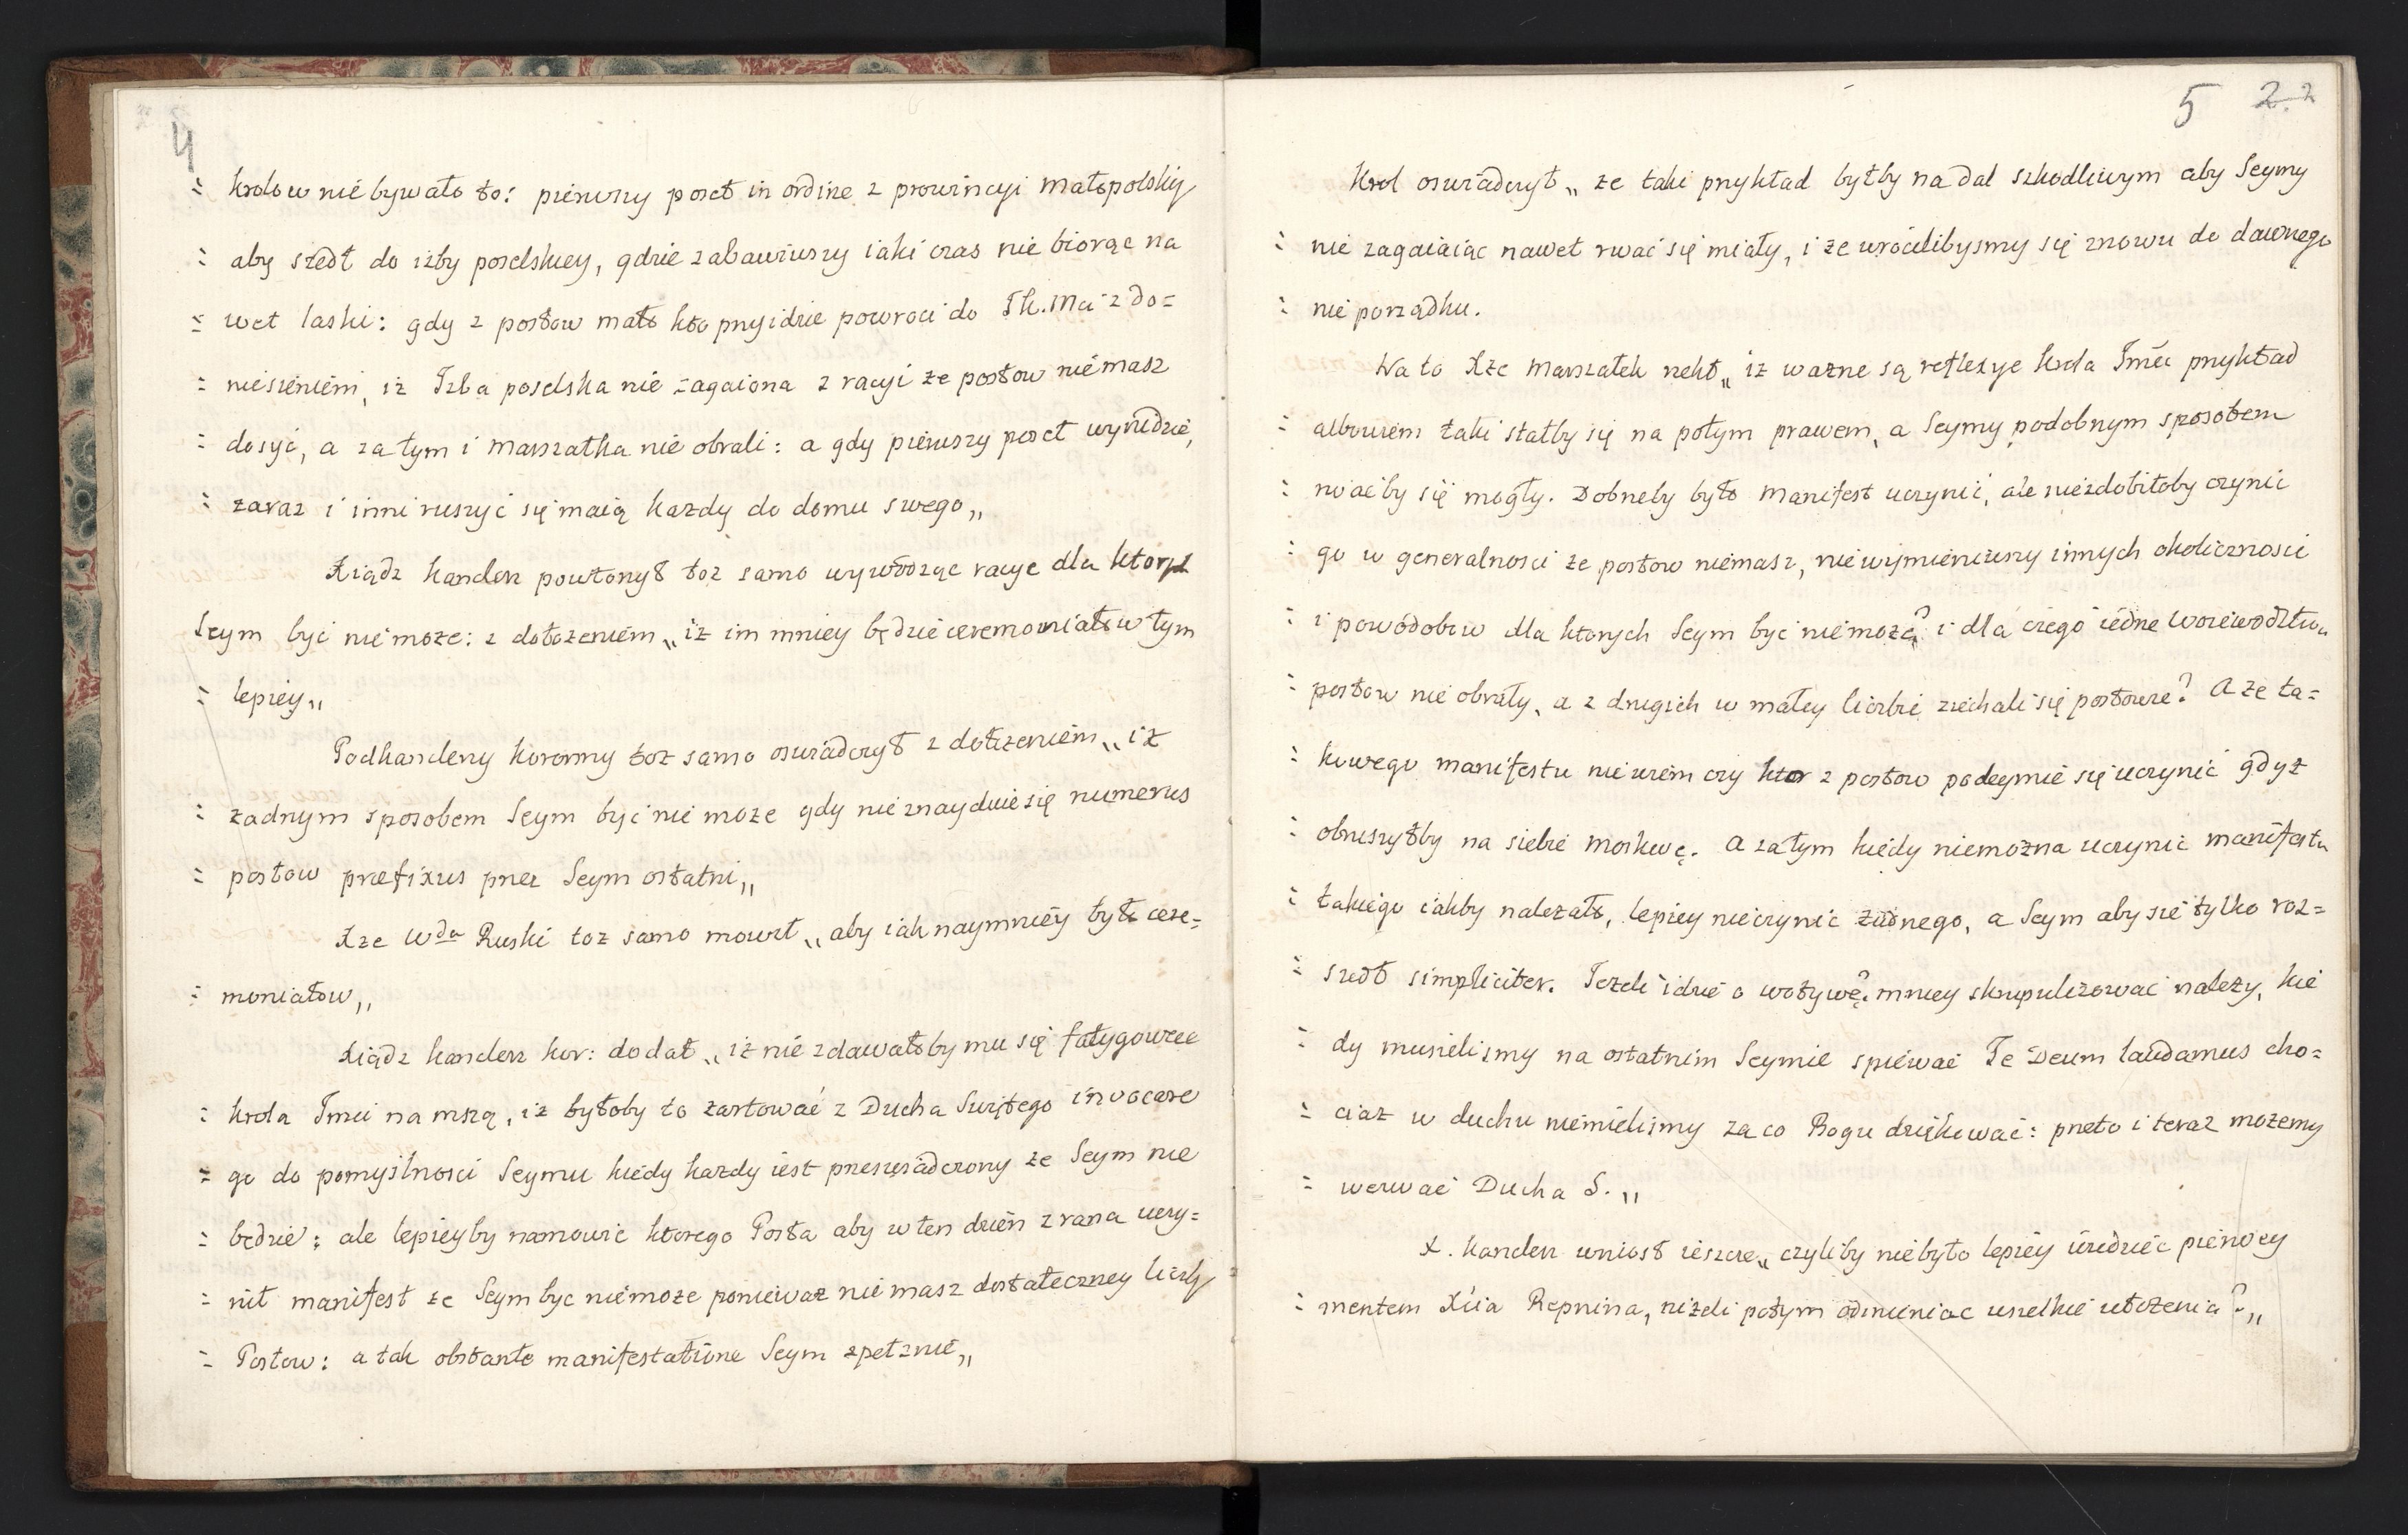 4
„ krolow nie bywało to: pierwszy poseł in ordine z prowincyi małopolskiy
„ aby szedł do izby poselskiey, gdzie zabawiwszy iaki czas nie biorąc na
„ wet laski: gdy z posłow mało kto przyidzie powroci do J.K.Mci z do=
„ niesieniem, iż Izba poselska nie zagaiona z racyi że posłow niemasz
„ dosyć, a zatym i Marszałka nie obrali: a gdy pierwszy poseł wynidzie,
„ zaraz i inni ruszyć się maią każdy do domu swego„
Xiądz kanclerz powtorzył toż samo wywodząc racye dla ktorych
Seym być niemoże: z dołożeniem „iż im mniey będzie ceremoniałow tym
„ lepiey„
Podkanclerzy koronny toż samo oswiadczył z dołożeniem„ iż
„ żadnym sposobem Seym być nie może gdy nie znayduie się numerus
„ posłow praefixus przez Seym ostatni„
Xże Wda Ruski toż samo mowił„ aby iak naymniey było cere=
„ moniałow„
Xiądz kanclerz kor: dodał„ iż nie zdawałoby mu się fatygowac
„ krola Jmci na mszą, iż byłoby to żartować z Ducha Swiętego invocare
„ go do pomyslnosci Seymu kiedy każdy iest przeswiadczony że Seym nie
„ będzie: ale lepieyby namowić ktorego Posła aby w ten dzień z rana uczy=
„ nił manifest że Seym byc niemoże ponieważ nie masz dostateczney liczby
„ Posłow: a tak obstante manifestatione Seym spełznie„
5 22
Krol oswiadczył„ że taki przykład byłby na dal szkodliwym aby Seymy
„ nie zagaiaiąc nawet rwać się miały, i że wrócilibysmy się znowu do dawnego
„ nie porządku.
Na to Xże Marszałek rzekł„ iż ważne są reflexye Krola Jmći przykład
„ albowiem taki stałby się na potym prawem, a Seymy podobnym sposobem
„ rwać by się mogły. Dobrzeby było manifest uczynić, ale niezdobiłoby czynic
„ go w generalnosci że posłow niemasz, niewymieniwszy innych okolicznosci
„ i powódobow dla ktorych Seym byc niemoże? i dla czego iedne Woiewodztwa
„ posłow nie obrały, a z drugich w małey liczbie ziechali się posłowie? A że ta=
„ kowego manifestu nie wiem czy kto z posłow podeymie się uczynić gdyż
„ obruszyłby na siebie Moskwę. A zatym kiedy niemożna uczynic manifestu
„ takiego iakby należało, lepiey nieczynic żadnego, a Seym aby sie tylko roz=
„ szedł simpliciter. Jeżeli idzie o wotywę? mniey skrupulizować należy, kie
„ dy musielismy na ostatnim Seymie spiewać Te Deum laudamus cho=
„ ciaż w duchu niemielismy za co Bogu dziękować: przeto i teraz możemy
„ wezwać Ducha S.„
X. Kanclerz wniosł ieszcze„ czyliby niebyło lepiey uwiedzieć pierwey
„ mentem Xcia Repnina, niżeli potym odmieniac wszelkie ułożenia?„